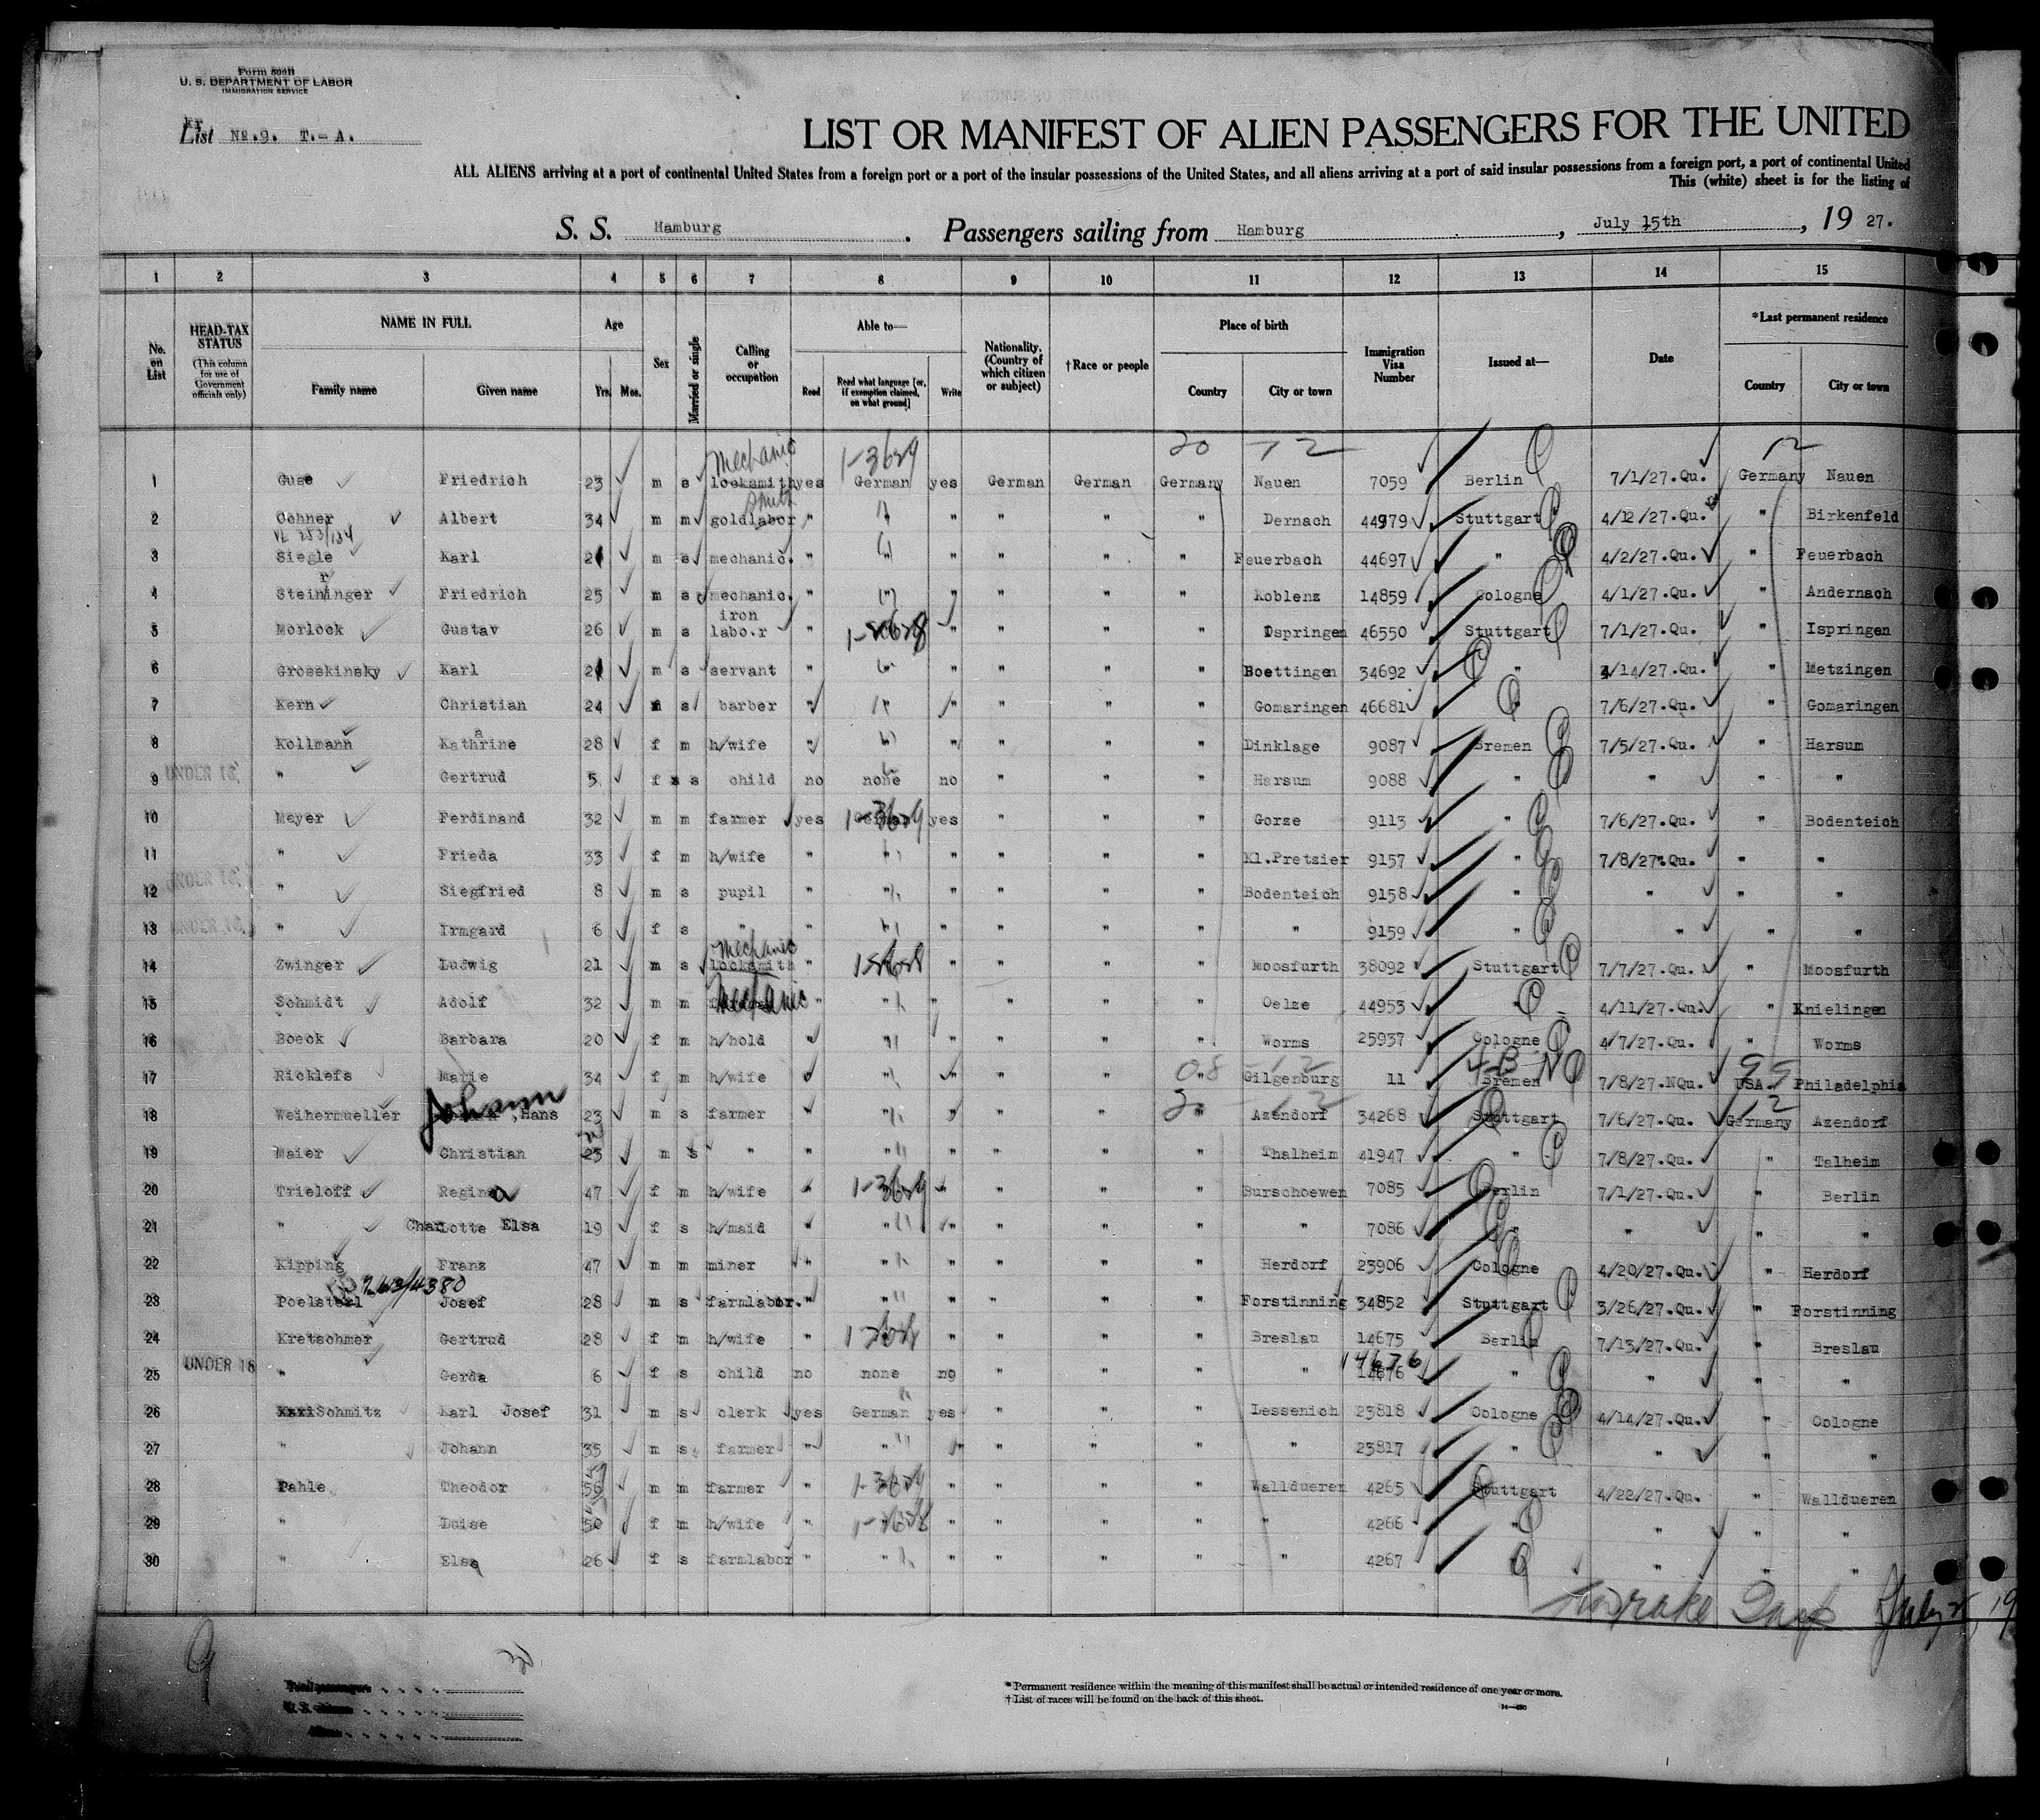 Form 500B
U. S. DEPARTMENT OF LABOR
IMMIGRATION SERVICE
kr
List No.9. T.-A.
LIST OR MANIFEST OF ALIEN PASSENGERS FOR THE UNITED
ALL ALIENS arriving at a port of continental United States from a foreign port or a port of the insular possessions of the United States, and all aliens arriving at a port of said insular possessions from a foreign port, a port of continental United
This (white) sheet is for the listing of
S. S. Hamburg. Passengers sailing from Hamburg, July 15th, 19 27.
1 2 3 4 5 6 7 8 9 10 11 12 13 14 15
No. on List HEAD-TAX STATUS (This column for use of Government officials only) NAME IN FULL Family name Given name Age Yrs. Mos. Sex Married or single Calling or occupation Able to— Read Read what language [or, if exemption claimed, on what ground] Write Nationality. (Country of which citizen or subject) †Race or people Place of birth Country City or town Immigration Visa Number Issued at— Date *Last permanent residence Country City or town
mechanic 1-3629 20 -12 12
1 Guse Friedrich 23 m s locksmith yes German yes German German Germany Nauen 7059 Berlin 7/1/27.Qu. Germany Nauen
smith
2 Ochner Albert 34 m m goldlabor " " " " " " Dernach 44979 Stuttgart 4/12/27.Qu. " Birkenfeld
3 Siegle Karl 21 m s mechanic. " " " " " " Feuerbach 44697 " 4/2/27.Qu. " Feuerbach
r
4 Steininger Friedrich 25 m s mechanic. " " " " " " Koblenz 14859 Cologne 4/1/27.Qu. " Andernach
iron
5 Morlock Gustav 26 m s labo.r " 1-3628 " " " " Ispringen 46550 Stuttgart 7/1/27.Qu. " Ispringen
6 Grosskinsky Karl 21 m s servant " " " " " " Boettingen 34692 " 4/14/27.Qu. " Metzingen
7 Kern Christian 24 m s barber " " " " " " Gomaringen 46681 " 7/6/27.Qu. " Gomaringen
a
8 Kollmann Kathrine 28 f m h/wife " " " " " " Dinklage 9087 Bremen 7/5/27.Qu. " Harsum
9 UNDER 16 " Gertrud 5 f s child no none no " " " Harsum 9088 " " " "
10 Meyer Ferdinand 32 m m farmer yes 1-3629 yes " " " Gorze 9113 " 7/6/27.Qu. " Bodenteich
11 " Frieda 33 f m h/wife " " " " " " Kl.Pretzier 9157 " 7/8/27.Qu. " "
12 UNDER 16 " Siegfried 8 m s pupil " " " " " " Bodenteich 9158 " " " "
13 UNDER 16 " Irmgard 6 f s " " " " " " " " 9159 " " " "
mechanic
14 Zwinger Ludwig 21 m s locksmith " 1-3628 " " " " Moosfurth 38092 Stuttgart 7/7/27.Qu. " Moosfurth
15 Schmidt Adolf 32 m m mechanic " " " " " " Oelze 44953 " 4/11/27.Qu. " Knielingen
16 Boeck Barbara 20 f m h/hold " " " " " " Worms 25937 Cologne 4/7/27.Qu. " Worms
08 -12 4-B N 99
17 Ricklefs Marie 34 f m h/wife " " " " " " Gilgenburg 11 Bremen 7/8/27.NQu. USA. Philadelphia
20 -12 12
18 Weihermueller Johann ,Hans 23 m s farmer " " " " " " Azendorf 34268 Stuttgart 7/6/27.Qu. Germany Azendorf
19 Maier Christian 23 m s " " " " " " " Thalheim 41947 " 7/8/27.Qu. " Talheim
20 Trieloff Regina 47 f m h/wife " 1-3629 " " " " Burschoewen 7085 Berlin 7/1/27.Qu. " Berlin
21 " Charlotte Elsa 19 f s h/maid " " " " " " " 7086 " " " "
22 Kipping Franz 47 m m miner " " " " " " Herdorf 23906 Cologne 4/20/27.Qu. " Herdorf
23 Poelsterl Josef 28 m s farmlabor. " " " " " " Forstinning 34852 Stuttgart 3/26/27.Qu. " Forstinning
24 Kretschmer Gertrud 28 f m h/wife " 1-3628 " " " " Breslau 14675 Berlin 7/13/27.Qu. " Breslau
14676
25 UNDER 16 " Gerda 6 f s child no none no " " " " 14676 " " " "
26 Schmitz Karl Josef 31 m s clerk yes German yes " " " Lessenich 23818 Cologne 4/14/27.Qu. " Cologne
27 " Johann 35 m s farmer " " " " " " " 23817 " " " "
28 Pahle Theodor 56 m m farmer " 1-3629 " " " " Walldueren 4265 Stuttgart 4/22/27.Qu. " Walldueren
29 " Luise 50 f m h/wife " 1-3628 " " " " " 4266 " " " "
30 " Elsa 26 f s farmlabor " " " " " " " 4267 " " " "
9 30
Total passengers
U. S. citizens
Aliens
* Permanent residence within the meaning of this manifest shall be actual or intended residence of one year or more.
† List of races will be found on the back of this sheet.